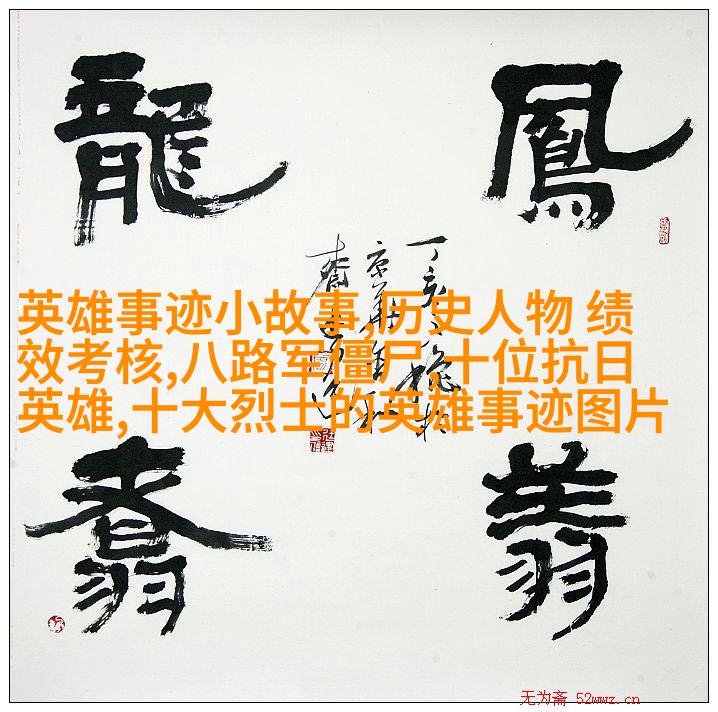 鳳翔
龍翥
丁亥
京華
英雄事迹小故事,历史人物 绩
效考核,八路军僵尸,十位抗日
英雄,十大烈士的英雄事迹图片
无为斋 52wwz.cn